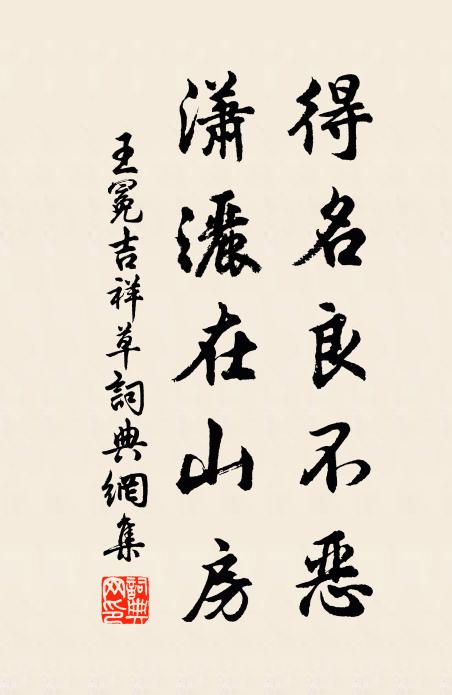 得名良不惡
瀟灑在山房
王冕吉祥草詞典網集
詞典
网印